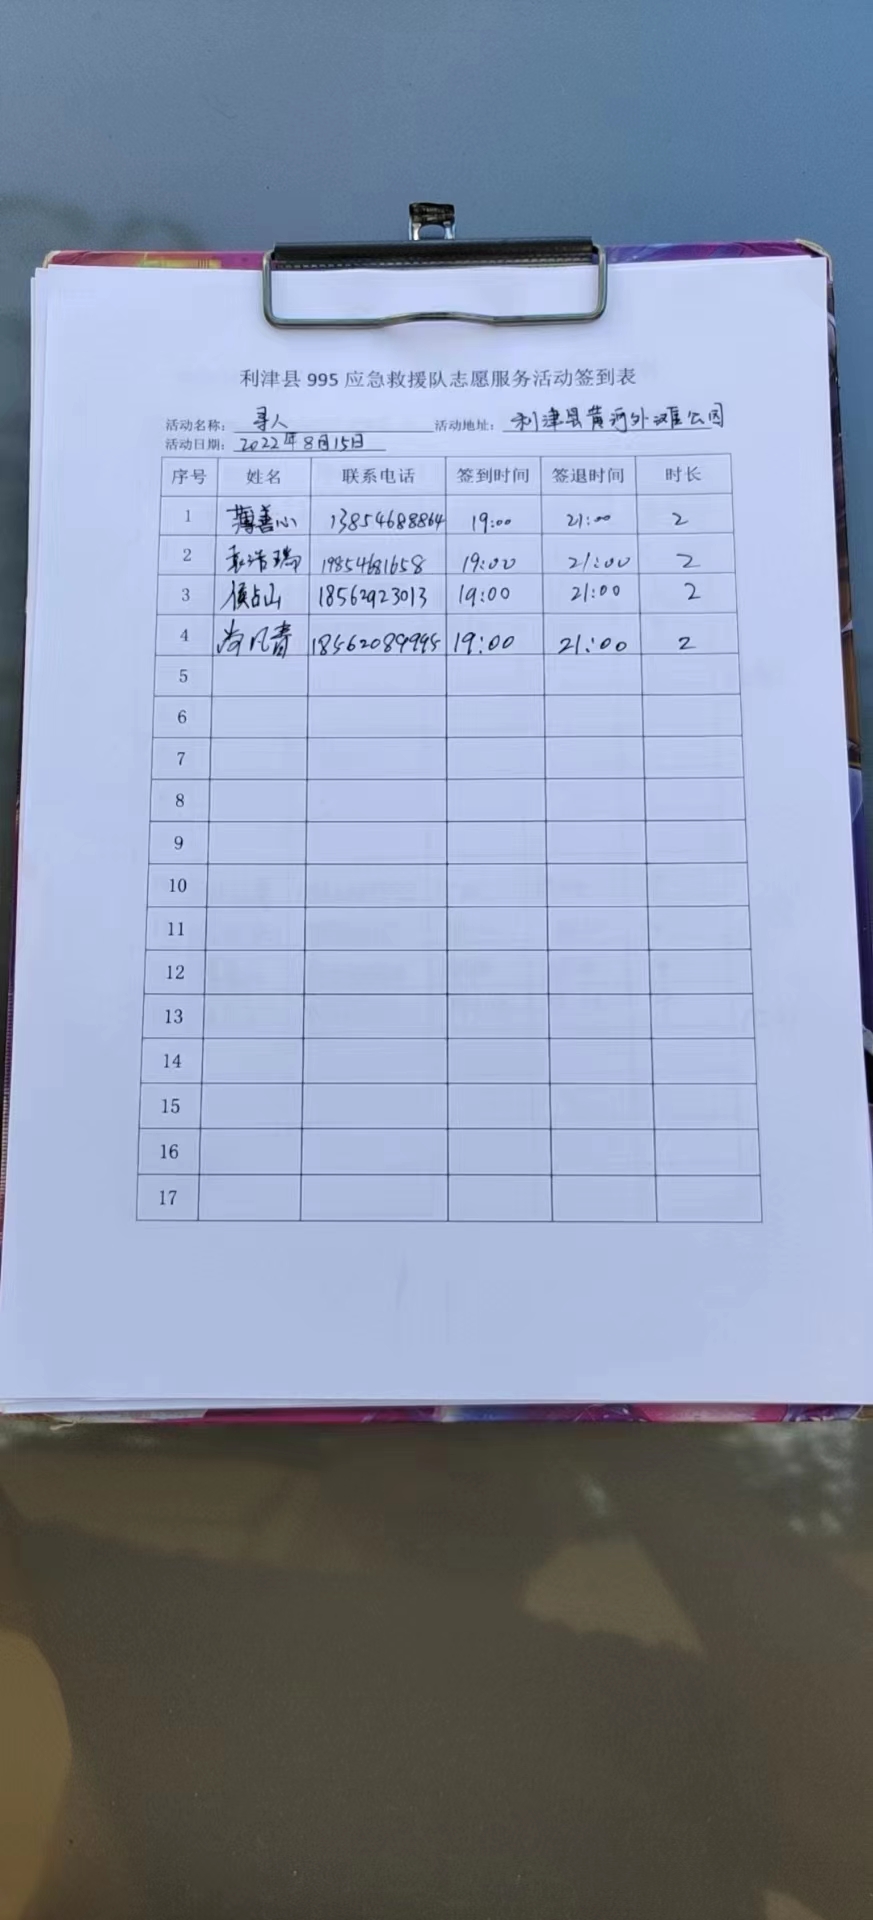 利津县 995 应急救援队志愿服务活动签到表
活动名称：寻人 活动地址：利津县黄河外滩公园
活动日期：2022年8月15日
序号 姓名 联系电话 签到时间 签退时间 时长
1 薄善心 13854688864 19:00 21:00 2
2 19854681658 19:00 21:00 2
3 侯占山 18562923013 19:00 21:00 2
4 尚风青 18562089995 19:00 21:00 2
5
6
7
8
9
10
11
12
13
14
15
16
17